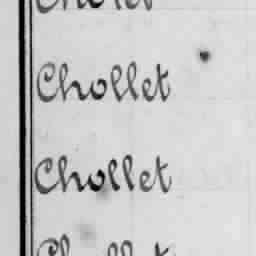 Chollet
Chollet